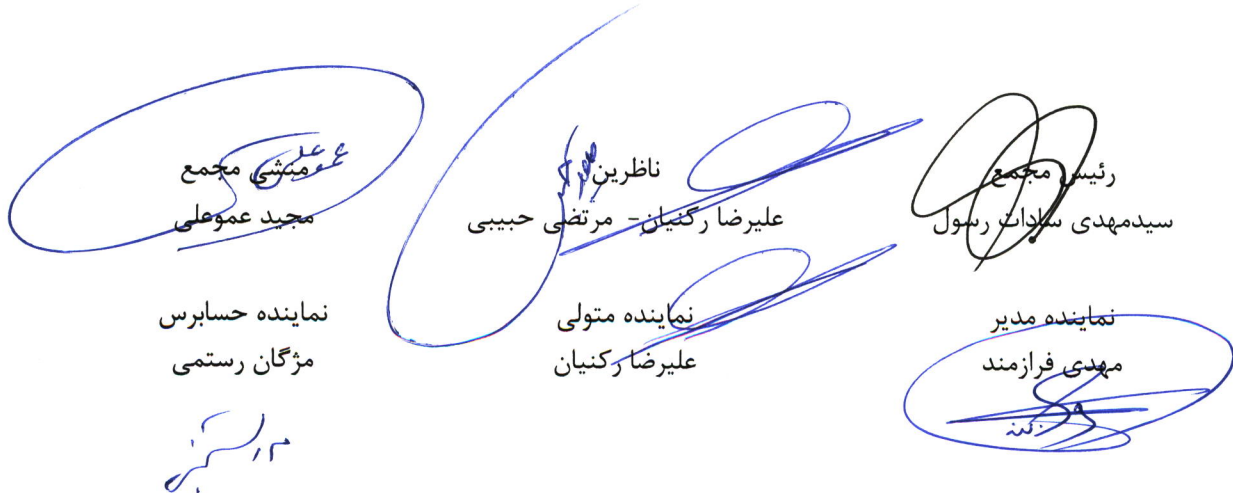 رئیس مجمع
سیدمهدی سادات رسول
ناظرین
علیرضا رکنیان- مرتضی حبیبی
منشی مجمع
مجید عموعلی
نماینده مدیر
مهدی فرازمند
نماینده متولی
علیرضا رکنیان
نماینده حسابرس
مژگان رستمی